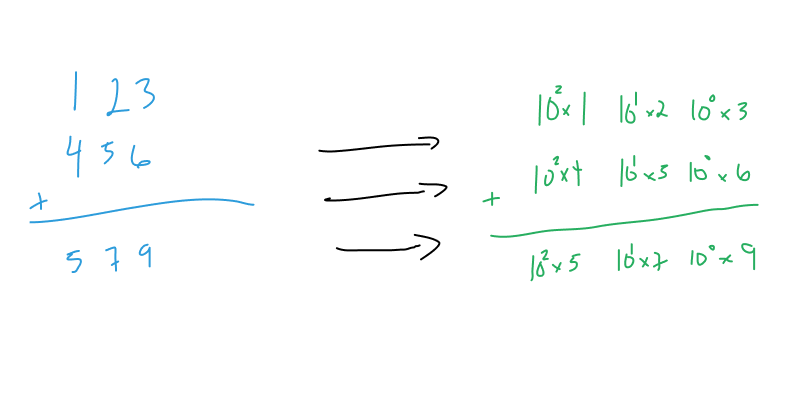 1 2 3
4 5 6
+
5 7 9
10² × 1 10¹ × 2 10⁰ × 3
10² × 4 10¹ × 5 10⁰ × 6
+
10² × 5 10¹ × 7 10⁰ × 9